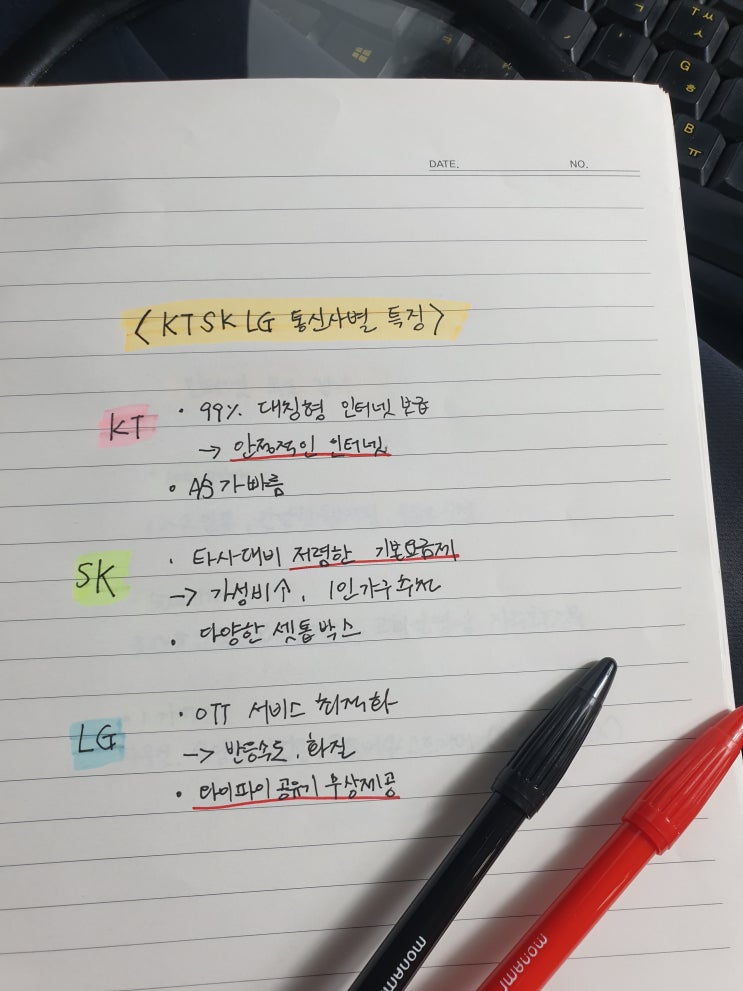 DATE.
NO.
<KT SK LG 통신사별 특징>
KT
• 99% 대칭형 인터넷 보급
→ 안정적인 인터넷
• A/S가 빠름
SK
• 타사대비 저렴한 기본요금제
→ 가성비↑, 1인가구 추천
• 다양한 셋톱박스
LG
• OTT 서비스 최적화
→ 반응속도, 화질
• 와이파이 공유기 무상제공
monami
monami
G
ㅎ
B
ㅠ
T
ㅅ